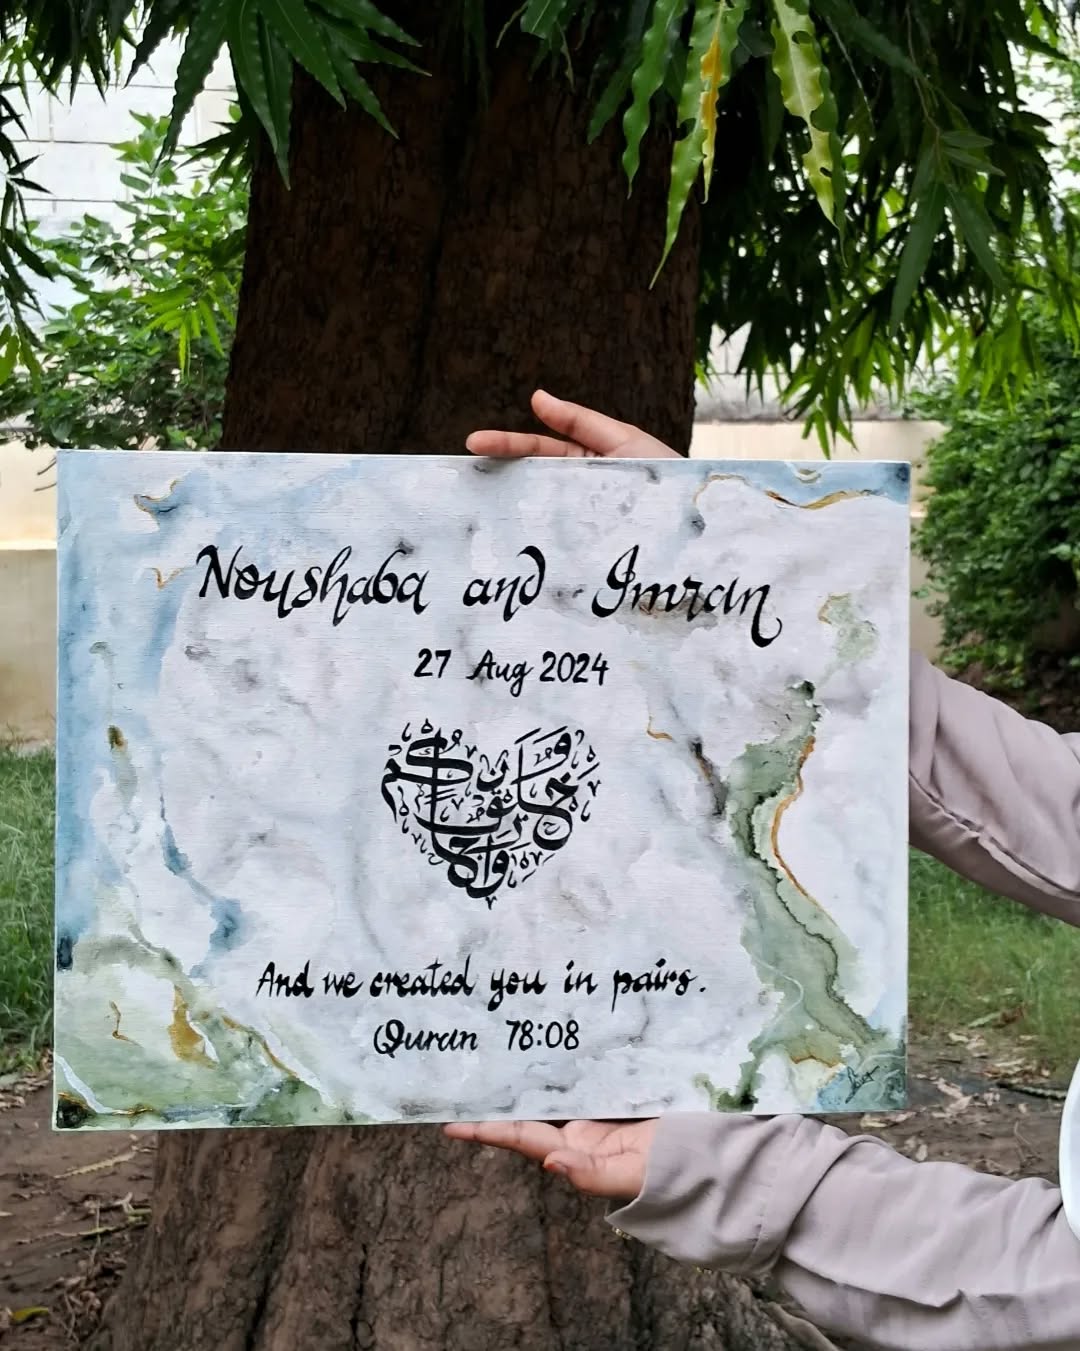 Noushaba and Imran
27 Aug 2024
وخلقناكم
أزواجا
And we created you in pairs.
Quran 78:08